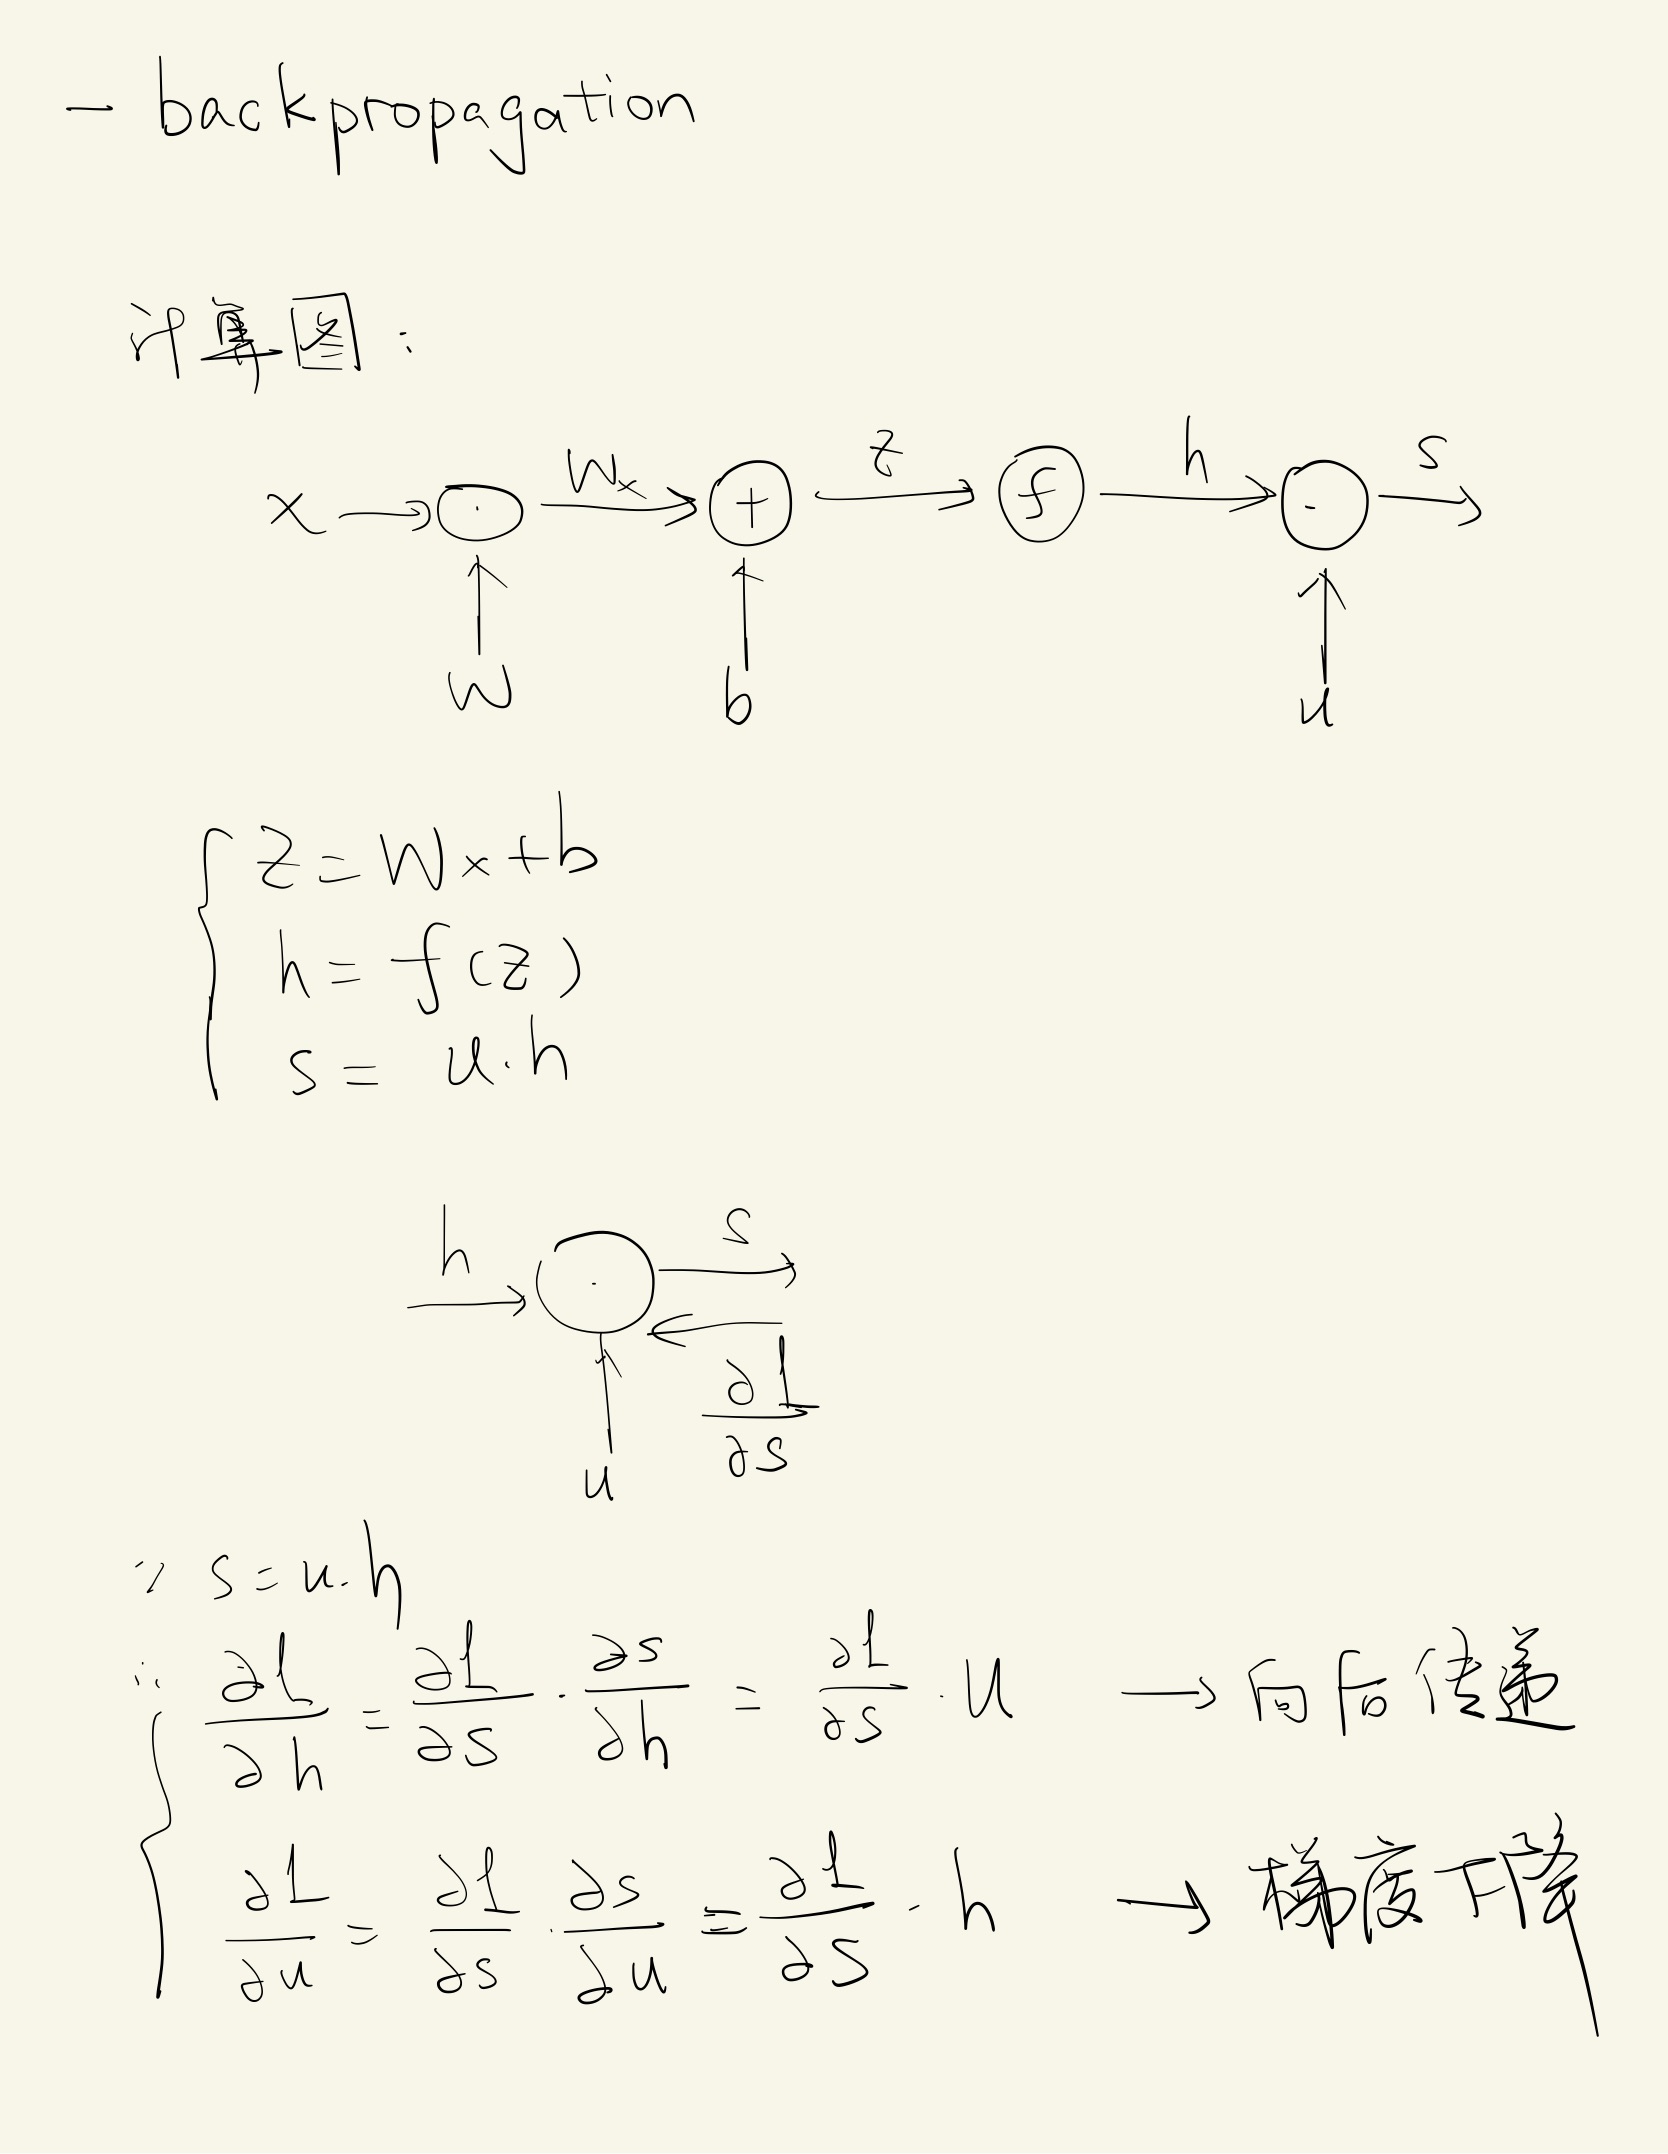 - backpropagation
计算图:
x → · Wx → + z → f h → · s →
W b u
z = Wx + b
h = f(z)
s = u·h
h · s
∂L/∂s
u
∵ s = u·h
∴ ∂L/∂h = ∂L/∂s · ∂s/∂h = ∂L/∂s · u → 向后传递
∂L/∂u = ∂L/∂s · ∂s/∂u = ∂L/∂s · h → 梯度下降